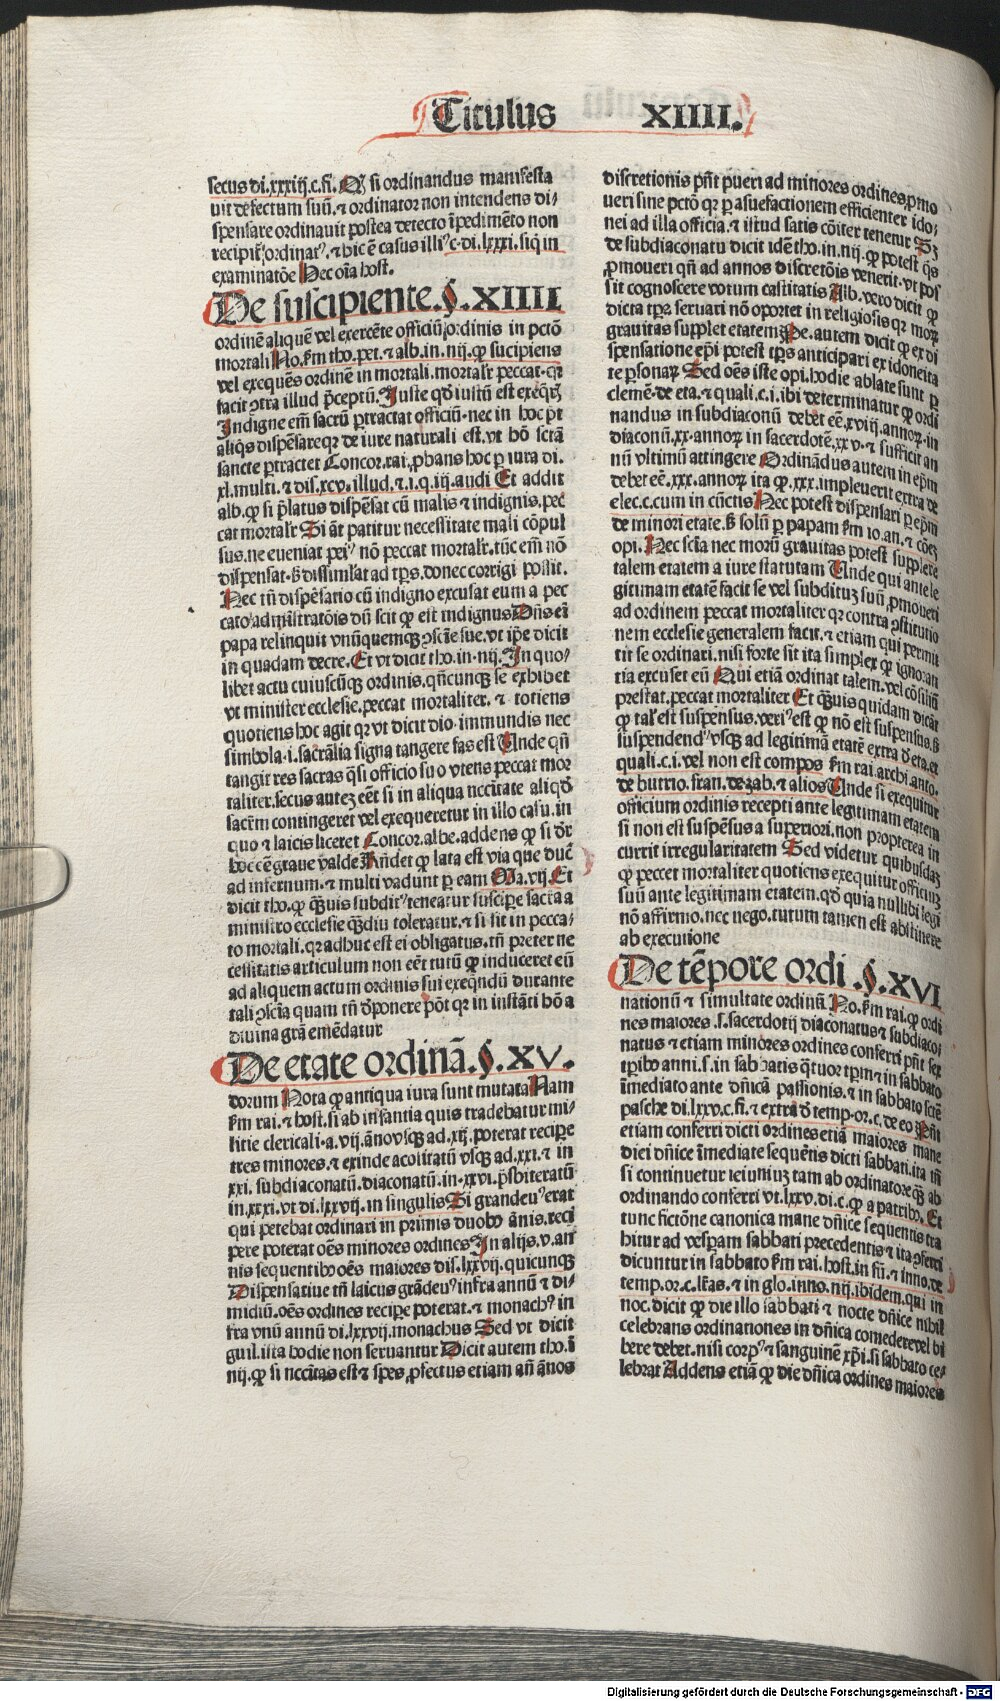 Titulus XIIII.
secus di.xxxiij.c.fi. Qƺ si ordinandus manifesta
uit defectum suū.⁊ ordinator non intendens di-
spensare ordinauit postea detecto īpedimēto non
recipit ordinatꝰ.⁊ hic ē casus illiꝰ c.di.lxxxi.siq̄ in
examinatōe Hec oīa host.
De suscipiente.§.XIIII
ordinē aliquē vel exercēte officiū ordinis in pctō
mortali No. ẜm tho.pet.⁊ alb.in.iiij.ꝙ sucipiens
vel exequēs ordinē in mortali.mortalr̄ peccat.qꝛ
facit ɔtra illud p̄ceptū. Juste qd̓ iustū est exeq̄rꝭ
Indigne em̄ sacrū ꝑtractat officiū.nec in hoc pōt
aliq̄s dispēsare qꝛ de iure naturali est.vt hō scrā
sancte ꝑtractet Concor.rai.ꝓbans hoc ꝑ iura di.
xl.multi.⁊ dis.xcv.illud.⁊.i.q.iij.audi Et addit
alb.ꝙ si p̄latus dispēsat cū malis ⁊ indignis.pec
cat mortalr̄ Si āt patitur necessitate mali cōpul
sus.ne eueniat peiꝰ nō peccat mortalr̄.tūc em̄ nō
dispensat.ß dissimlat ad tp̄s.donec corrigi possit.
Nec tn̄ dispēsatio cū indigno excusat eum a pec
cato administratōis dū scit ꝙ est indignus Dn̄s em̄
papa relinquit vnūquemqƺ ɔscīe sue.vt ip̄e dicit
in quadam decre. Et vt dicit tho.in.iiij. In quo-
libet actu cuiuscūqƺ ordinis.qn̄cunqƺ se exhibet
vt minister ecclesie.peccat mortaliter.⁊ totiens
quotiens hoc agit qꝛ vt dicit dio.immundis nec
simbola.i.sacrālia signa tangere fas est Unde qn̄
tangit res sacras q̄si officio suo vtens peccat mor
taliter.secus autez eēt si in aliqua nccitate aliqd̓
sacrm̄ contingeret vel exequeretur in illo casu.in
quo ⁊ laicis liceret Concor.albe.addens ꝙ si dr̄
hoc eē graue valde Rn̄det ꝙ lata est via que duc̄
ad infernum.⁊ multi vadunt ꝑ eam Ma.vij. Et
dicit tho.ꝙ q̄uis subditꝰ teneatur suscipe sacra a
ministro ecclesie q̄diu toleratur.⁊ si sit in pecca-
to mortali.qꝛ adhuc est ei obligatus.tn̄ preter ne
cessitatis articulum non eēt tutū ꝙ induceret eū
ad aliquem actum ordinis sui exeq̄ndū durante
tali ɔscīa quam tn̄ d̓ponere pōt qꝛ in instāti hō a
diuina grā emēdatur
De etate ordinā.§.XV.
dorum Nota ꝙ antiqua iura sunt mutata Nam
ẜm rai.⁊ host.si ab infantia quis tradebatur mi-
litie clericali.a.vij.ānovsqƺ ad.xij.poterat recipe
tres minores.⁊ exinde acolitatū vsqƺ ad.xxi.⁊ in
xxi.subdiaconatū.diaconatū.in.xxvi.p̄sbiteratū
in.xxxi.vt di.lxxvij.in singulis Si grandeuꝰ erat
qui petebat ordinari in primis duobꝰ ānis.reci
pere poterat oēs minores ordines In alijs.v.an
nis sequentibꝰ oēs maiores dis.lxxvij.quicunqƺ
Dispensatiue tn̄ laicus grādeuꝰ infra annū ⁊ di-
midiū.oēs ordines recipe poterat.⁊ monachꝰ in
fra vnū annū di.lxxvij.monachus Sed vt dicit
guil.ista hodie non seruantur Dicit autem tho.ī
iiij.ꝙ si nccitas est ⁊ spes ꝓfectus etiam an̄ ānos
discretionis pn̄t pueri ad minores ordines ꝓmo
ueri sine pctō qꝛ ꝑ asuefactionem efficienter ido-
nei ad illa officia.⁊ istud satis cōiter tenetur Sƺ
de subdiaconatu dicit idē tho.in.iiij.ꝙ potest q̄s
ꝓmoueri qn̄ ad annos discretōis venerit.vt pos
sit cognoscere votum castitatis Alb.vero dicit ꝙ
dicta tp̄a seruari nō oportet in religiosis qꝛ moꝝ
grauitas supplet etatem Pe.autem dicit ꝙ ex di
spensatione ep̄i potest tp̄s anticipari ex idoneita
te ꝑsonaꝝ Sed oēs iste opi.hodie ablate sunt ꝑ
clemē.de eta.⁊ quali.c.i.ibi determinatur ꝙ ordi
nandus in subdiaconū debet eē.xviij.annoꝝ.in
diaconū.xx.annoꝝ in sacerdotē.xxv.⁊ sufficit an
nū vltimū attingere Ordinādus autem in ep̄m
debet eē.xxx.annoꝝ ita ꝙ.xxx.impleuerit extra de
elec.c.cum in cūctis Nec potest dispensari ꝑ ep̄m
de minori etate.ß solū ꝑ papam ẜm io.an.⁊ cōeƺ
opi. Nec scīa nec morū grauitas potest supplere
talem etatem a iure statutam Unde qui ante le
gitimam etatē facit se vel subditū suū ꝓmoueri
ad ordinem peccat mortaliter qꝛ contra ɔstitutio
nem ecclesie generalem facit.⁊ etiam qui permit
tit se ordinari.nisi forte sit ita simplex ꝙ ignoran
tia excuset eū Qui etiā ordinat talem.vel cōsiliū
prestat.peccat mortaliter Et q̄uis quidam dicāt
ꝙ talꝭ est suspensus.veriꝰ est ꝙ nō est suspensus.ß
suspendendꝰ vsqƺ ad legitimā etatē extra d̓ eta.et
quali.c.i.vel non est compos ẜm rai.archi.anto.
de butrio.fran.de zab.⁊ alios Unde si exequitur
officium ordinis recepti ante legitimam etatem
si non est suspēsus a superiori.non propterea in
currit irregularitatem Sed videtur quibusdaƺ
ꝙ peccet mortaliter quotiens exequitur officiuƺ
suū ante legitimam etatem.qd̓ quia nullibi legi
nō affirmo.nec nego.tutum tamen est abstinere
ab executione
De tēpore ordi.§.XVI
nationū ⁊ simultate ordinū. No. ẜm rai.ꝙ ordi
nes maiores.s.sacerdotij diaconatus ⁊ subdiaco-
natus ⁊ etiam minores ordines conferri pn̄t sex
tp̄ibꝰ anni.s.in sabbatis q̄tuor tp̄m ⁊ in sabbato
īmediato ante dn̄icā passionis.⁊ in sabbato sctē
pasche di.lxxv.c.fi.⁊ extra d̓ temp.or.c.de eo Pn̄t
etiam conferri dicti ordines etiā maiores mane
diei dn̄ice īmediate sequētis dicti sabbati.ita tn̄
si continuetur ieiuniuƺ tam ab ordinatore q̄ƺ ab
ordinando conferri vt.lxxv.di.c.ꝙ a patribꝰ. Et
tunc fictōne canonica mane dn̄ice sequentis tra
hitur ad vesꝑam sabbati precedentis ⁊ ita ɔferri
dicuntur in sabbato ẜm rai.host.in sū.⁊ inno.de
temp.or.c.lr̄as.⁊ in glo.inno.iiij.ibidem.qui in
noc.dicit ꝙ die illo sabbati ⁊ nocte dn̄ice nihil
celebrans ordinationes in dn̄ica comedere vel bi
bere debet.nisi corpꝰ ⁊ sanguinē xp̄i.si sabbato ce-
lebrat Addens etiā ꝙ die dn̄ica ordines maiores
Digitalisierung gefördert durch die Deutsche Forschungsgemeinschaft - DFG